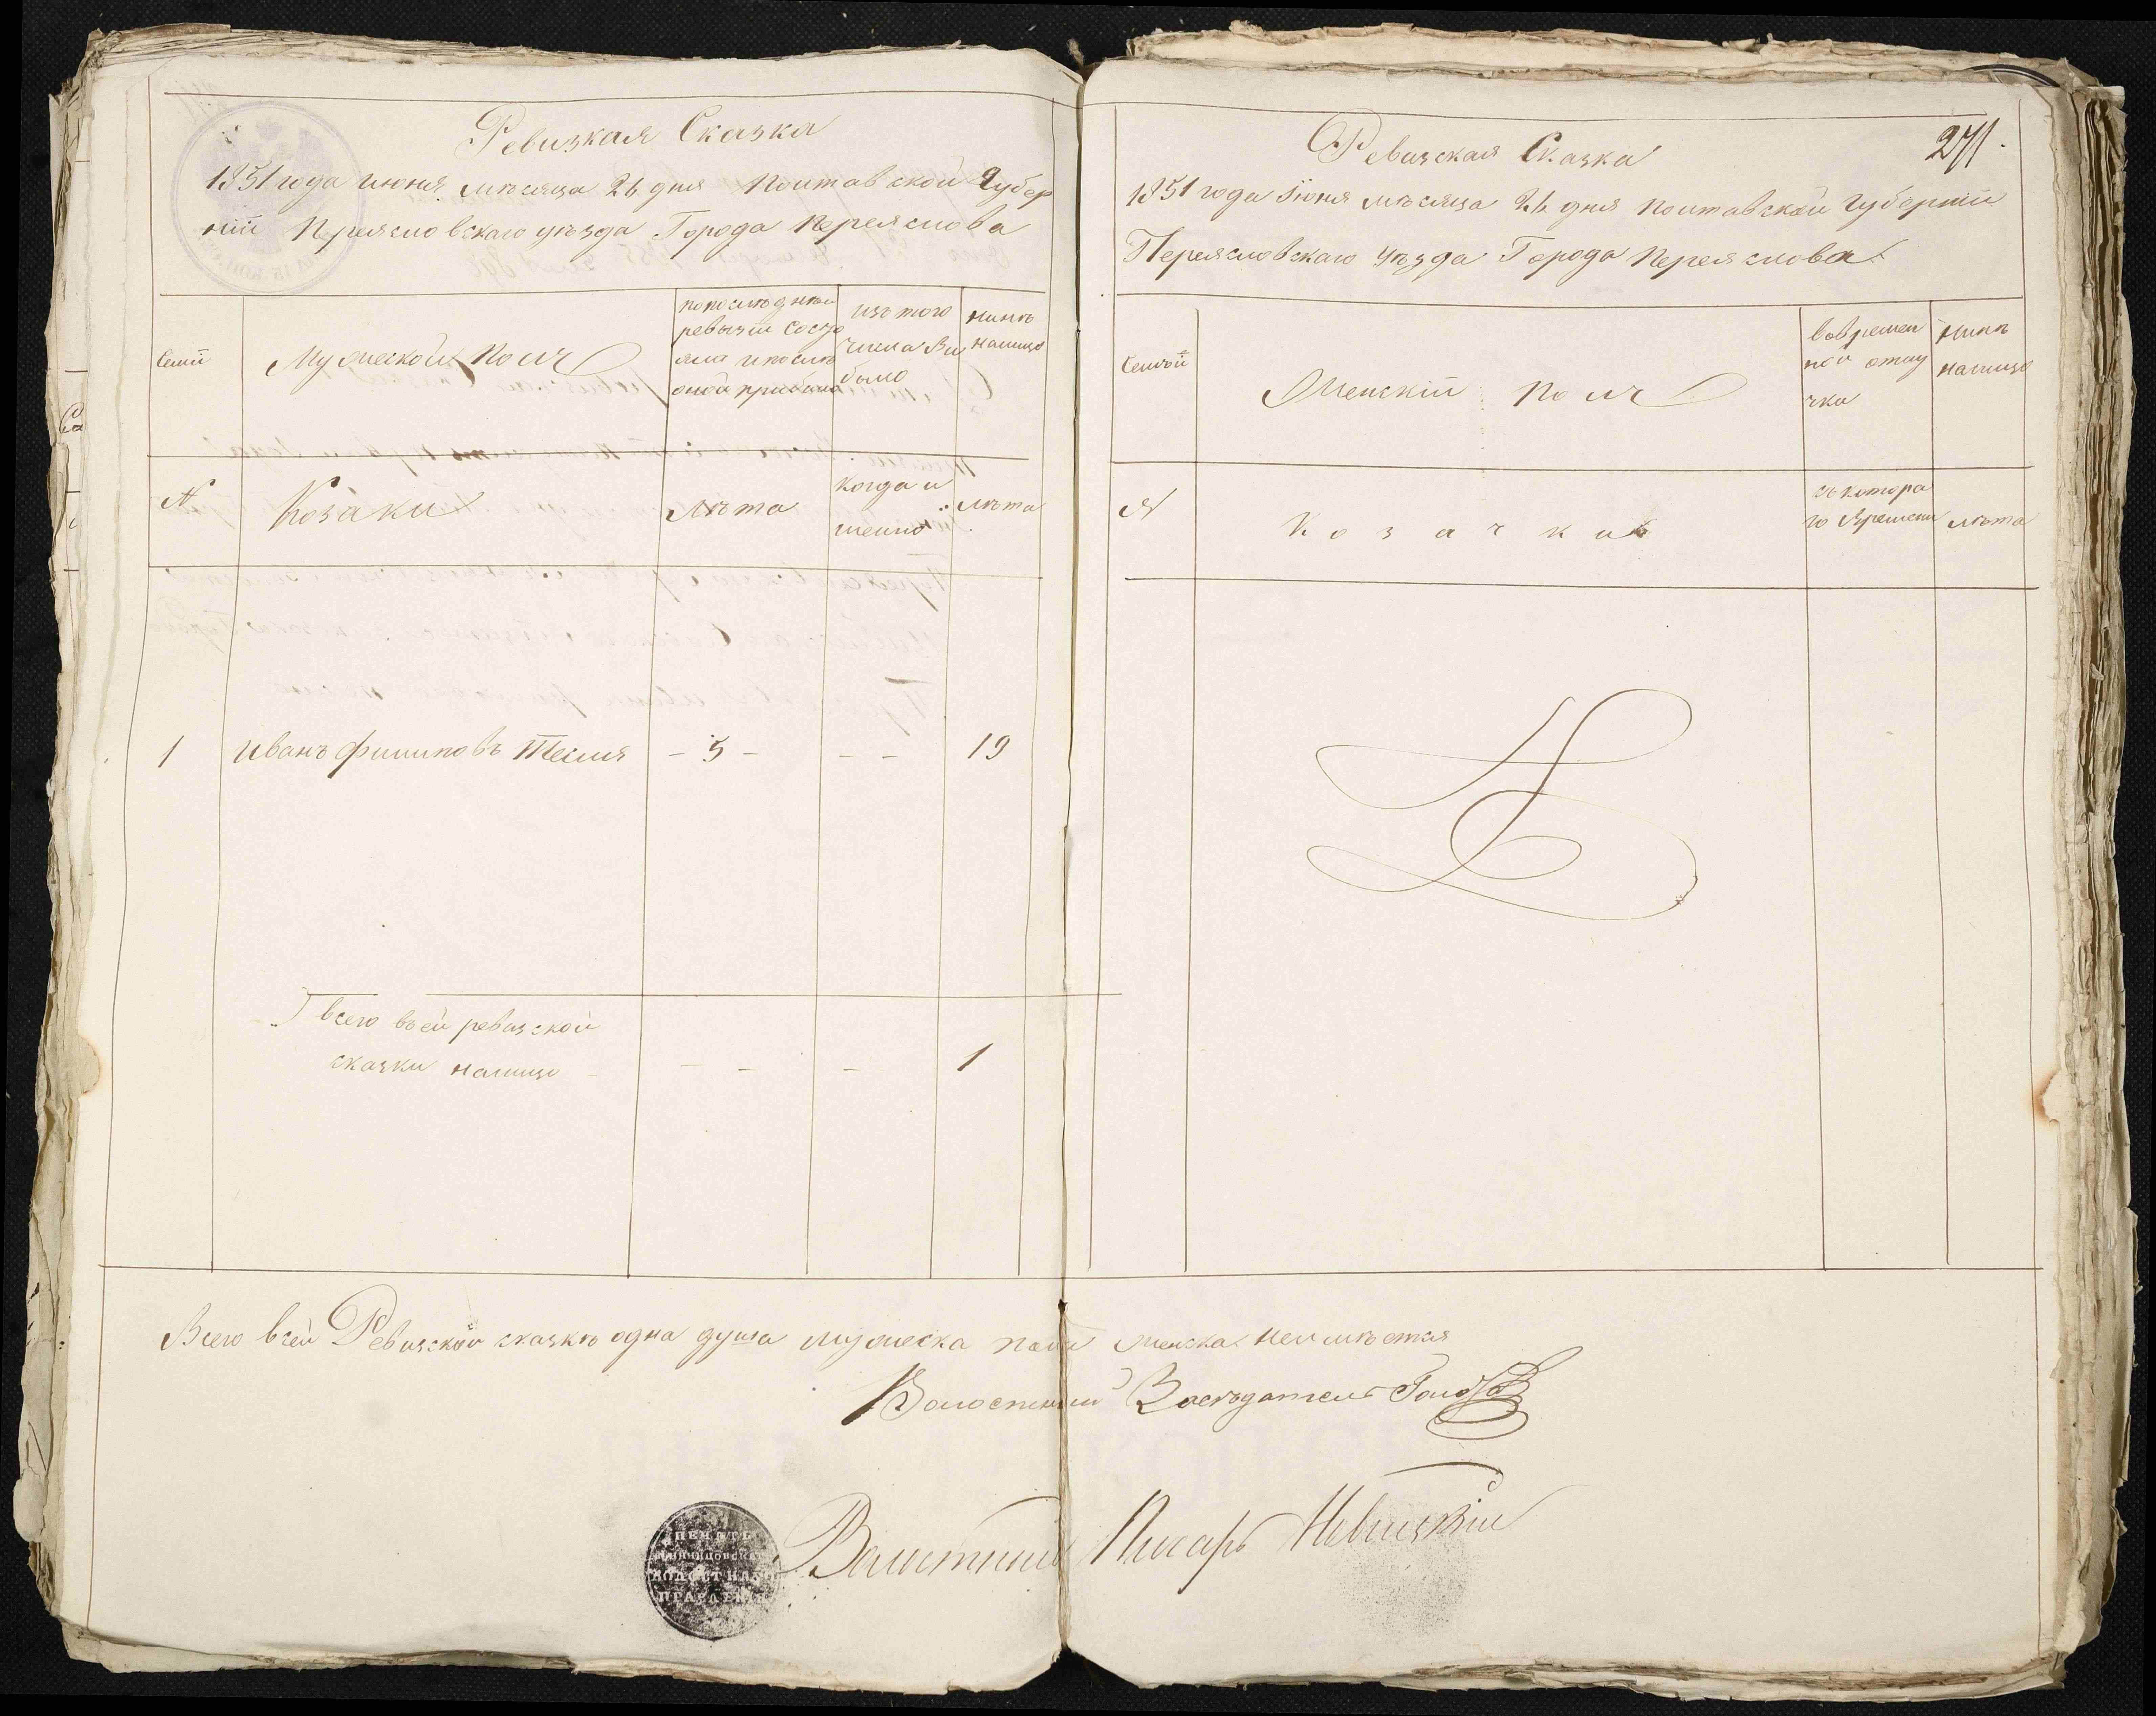 Ревизкая Сказка
1851 года июня месяца 26 дня Полтавской Губер
ніи Переясловскаго уѣзда Города Переяслова
Семіи
Мужеской Полъ
попоследнеи
ревызіи состо
яла ипосле
оной прибыло
изъ того
числа вы
было
нынѣ
налицо
№
Козаки
Лѣта
Когда и
менно
лѣта
1 Иванъ Филиповъ Тесля – 5 – – – 19
Всего въсей ревизской
сказки налицо – – – 1
271.
Ревизская Сказка
1851 года Іюня мѣсяца 26 дня Полтавской Губерніи
Переясловскаго Уѣзда Города Переяслова
Семьи
Женскій Полъ
вовремен
ной отлу
чки
Нынѣ
налицо
№
Козачки
съ котора
го Времени
лѣта
Всего всей Ревизской сказкѣ одна душа мужеска пола женска неимѣется
Волостный Засѣдатель
Волостный Писарь
ПЕЧАТЬ
ВОЛОСТНАГО
ПРАВЛЕНІЯ